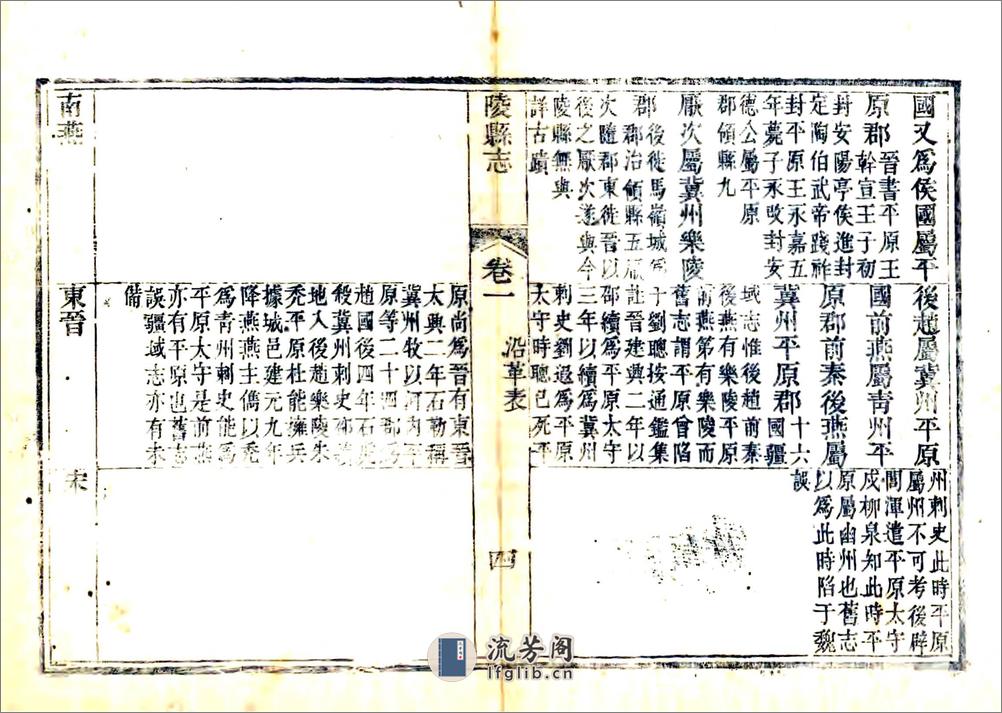 國又爲侯國屬平
原郡 晉書平原王
幹宣王子初
封安陽亭侯進封
定陶伯武帝踐祚
封平原王永嘉五
年薨子永改封安
德公屬平原
郡領縣九
厭次屬冀州樂陵
郡 後徙馬嶺城爲
郡治領縣五厭
次隨郡東徙晉以
後之厭次遂與今
陵縣無與
詳古蹟
後趙屬冀州平原
國前燕屬青州平
原郡前秦後燕屬
冀州平原郡 十六
國疆
域志惟後趙前秦
後燕有樂陵平原
前燕第有樂陵而
舊志謂平原曾陷
于劉聰按通鑑集
註晉建興二年以
邵續爲平原太守
三年以續爲冀州
刺史劉遐爲平原
太守時聰已死平
州刺史此時平原
屬州不可考後辟
閭渾遣平原太守
戍柳泉知此時平
原屬幽州也舊志
以爲此時陷于魏
誤
陵縣志
卷一
沿革表
四
原尚爲晉有東晉
太興二年石勒稱
冀州牧以河內平
原等二十四郡爲
趙國後四年石虎
殺冀州刺史邵續
地入後趙樂陵朱
禿平原杜能擁兵
據城邑建元九年
降燕燕主儁以禿
爲青州刺史能爲
平原太守是前燕
亦有平原也舊志
誤疆域志亦有未
備
南燕
東晉
宋
流芳阁
lfglib.cn